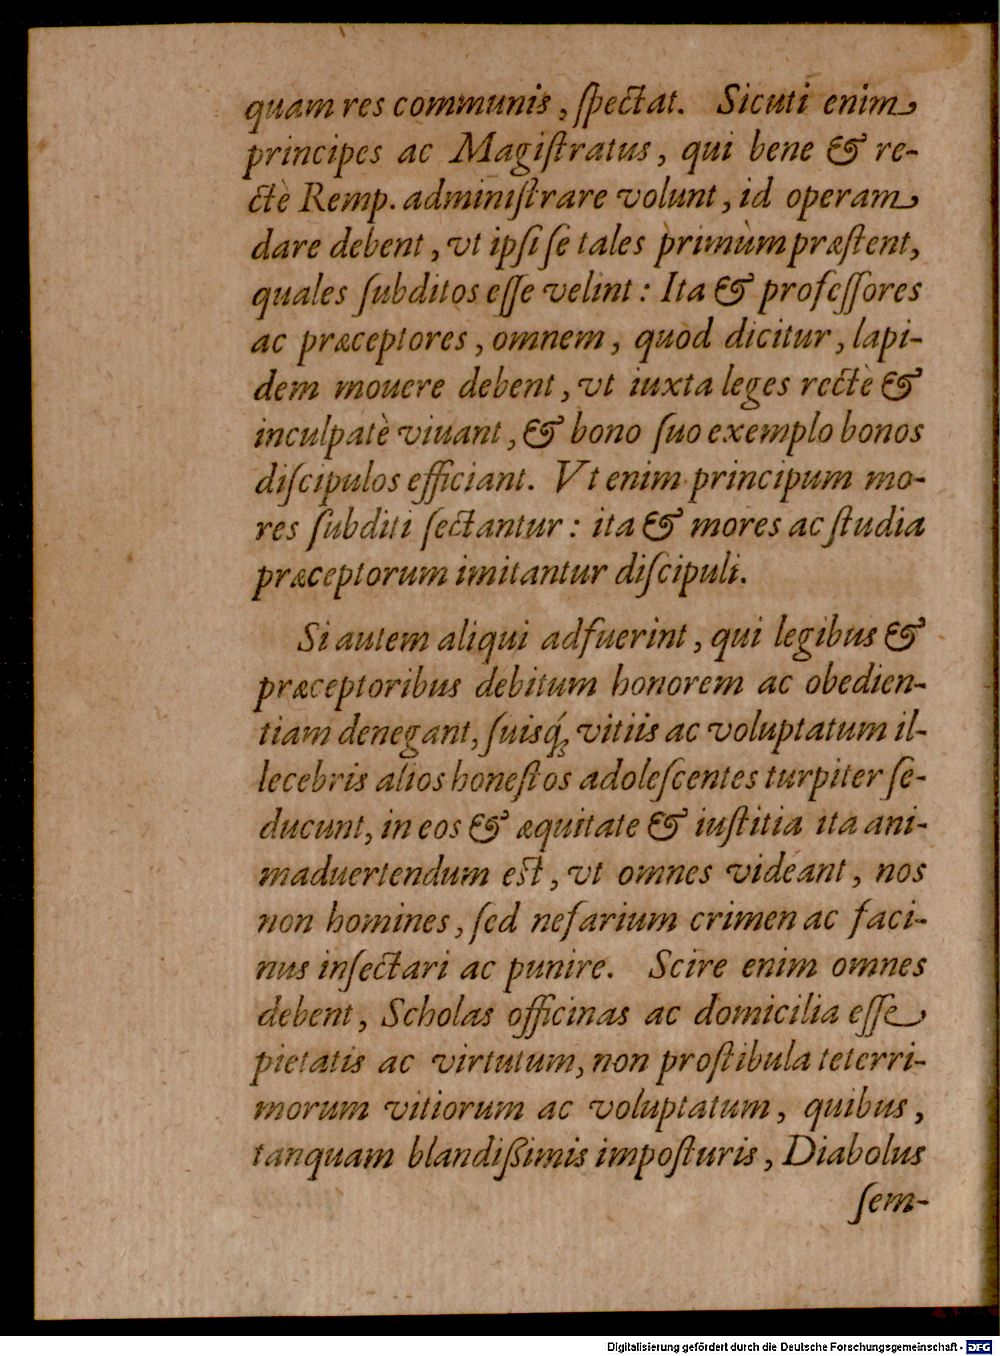 quam res communis, ſpectat. Sicuti enim
principes ac Magiſtratus, qui bene & re-
ctè Remp. adminiſtrare volunt, id operam
dare debent, vt ipſi ſe tales primùm præſtent,
quales ſubditos eſſe velint: Ita & profeſſores
ac præceptores, omnem, quod dicitur, lapi-
dem mouere debent, vt iuxta leges rectè &
inculpatè viuant, & bono ſuo exemplo bonos
diſcipulos efficiant. Vt enim principum mo-
res ſubditi ſectantur: ita & mores ac ſtudia
præceptorum imitantur diſcipuli.
Si autem aliqui adfuerint, qui legibus &
præceptoribus debitum honorem ac obedien-
tiam denegant, ſuisq́; vitiis ac voluptatum il-
lecebris alios honeſtos adoleſcentes turpiter ſe-
ducunt, in eos & æquitate & iuſtitia ita ani-
maduertendum eſt, vt omnes videant, nos
non homines, ſed nefarium crimen ac faci-
nus inſectari ac punire. Scire enim omnes
debent, Scholas officinas ac domicilia eſſe
pietatis ac virtutum, non proſtibula teterri-
morum vitiorum ac voluptatum, quibus,
tanquam blandißimis impoſturis, Diabolus
ſem-
Digitalisierung gefördert durch die Deutsche Forschungsgemeinschaft - DFG